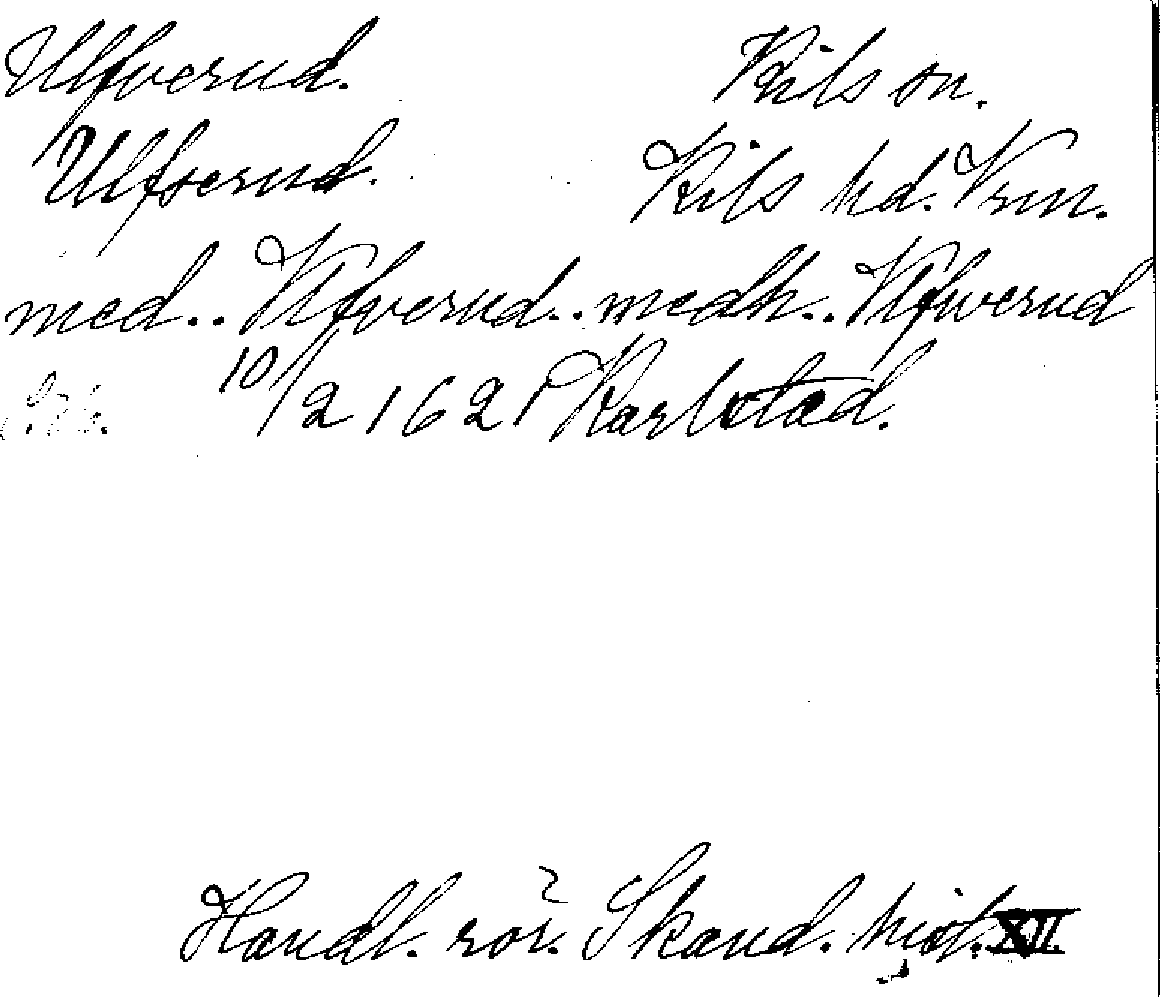 Ulfverud. Kils sn.
Ulfserud. Kils hd. Vrm.
med.. Ulfverud.. medh.. Ulfwerud
10/2 1621 Karlstad.
Handl. rör. Skand. hist. XII.